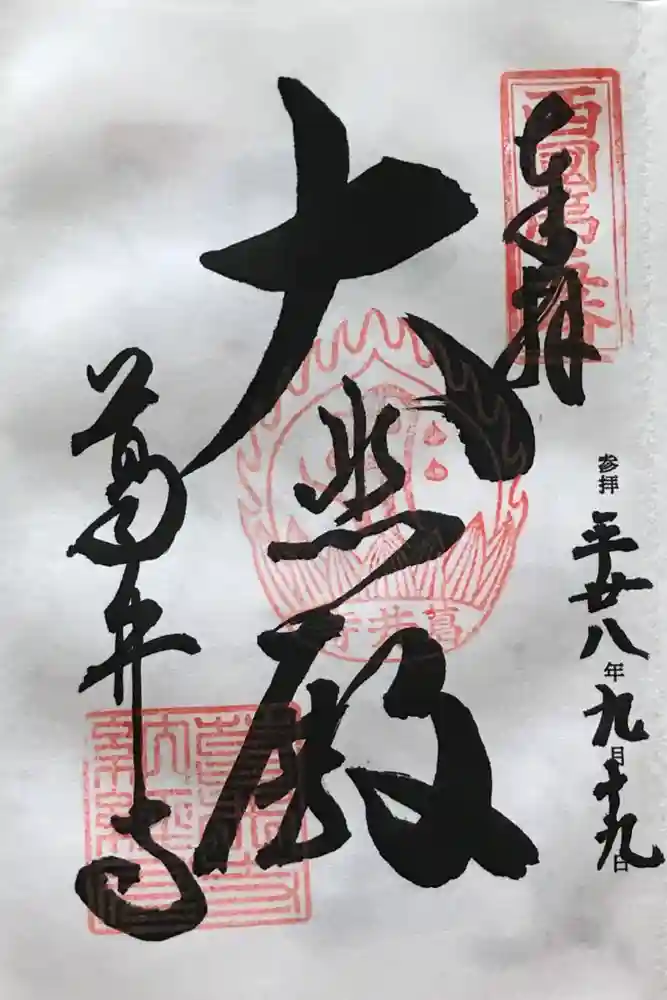 西國第五番
奉拝
参拝 平廿八年九月十九日
大悲殿
葛井寺
葛井寺